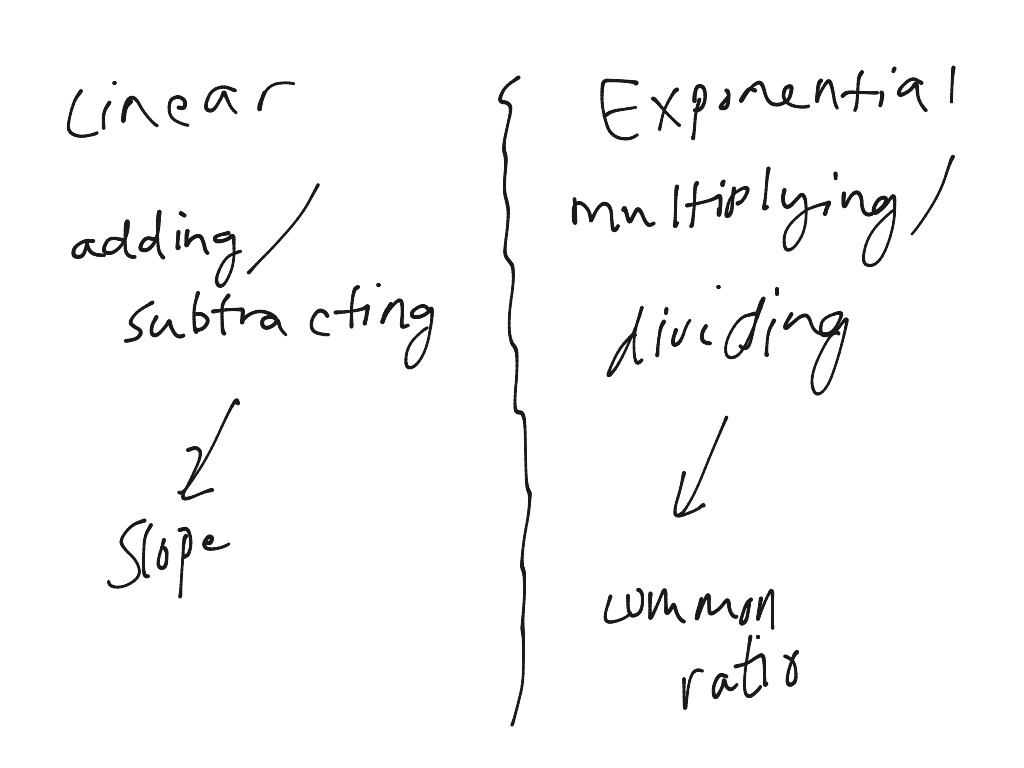 Linear
adding/
subtracting
slope
Exponential
multiplying/
dividing
common
ratio